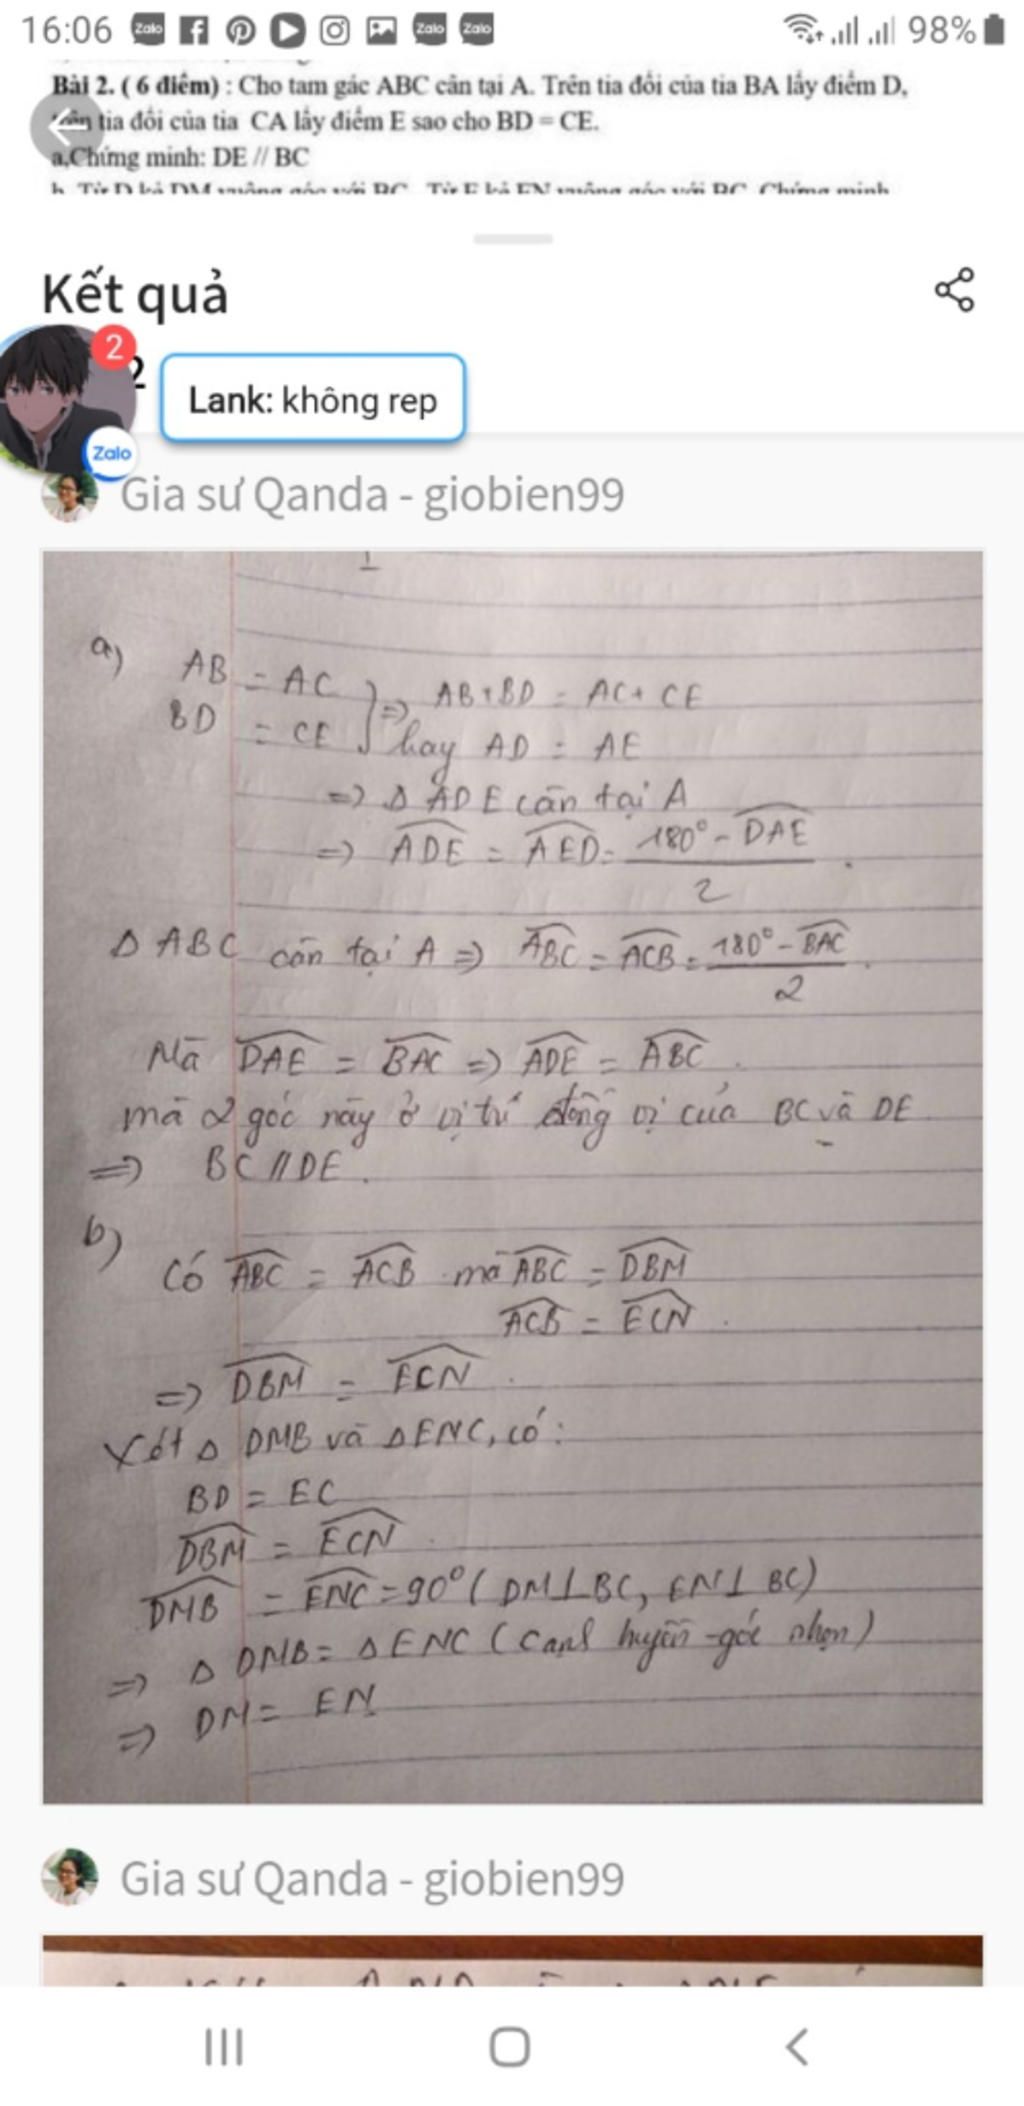 16:06 Zalo Zalo Zalo 98%
Bài 2. ( 6 điểm) : Cho tam gác ABC cân tại A. Trên tia đối của tia BA lấy điểm D,
tia đối của tia CA lấy điểm E sao cho BD = CE.
a,Chứng minh: DE // BC
b. Từ D kẻ DM vuông góc với BC. Từ E kẻ EN vuông góc với BC. Chứng minh
Kết quả
2
2
Lank: không rep
Zalo
Gia sư Qanda - giobien99
a) AB = AC
BD = CE } => AB+BD = AC+ CE
hay AD = AE
=> Δ ADE cân tại A
=> \widehat{ADE} = \widehat{AED} = \frac{180° - \widehat{DAE}}{2} .
Δ ABC cân tại A => \widehat{ABC} = \widehat{ACB} = \frac{180° - \widehat{BAC}}{2} .
Mà \widehat{DAE} = \widehat{BAC} => \widehat{ADE} = \widehat{ABC} .
mà 2 góc này ở vị trí đồng vị của BC và DE
=> BC // DE .
b)
Có \widehat{ABC} = \widehat{ACB} mà \widehat{ABC} = \widehat{DBM}
\widehat{ACB} = \widehat{ECN} .
=> \widehat{DBM} = \widehat{ECN} .
Xét Δ DMB và Δ ENC, có :
BD = EC
\widehat{DBM} = \widehat{ECN} .
\widehat{DMB} = \widehat{ENC} = 90° ( DM⊥BC, EN⊥ BC)
=> Δ DMB = Δ ENC ( cạnh huyền - góc nhọn )
=> DM = EN
Gia sư Qanda - giobien99